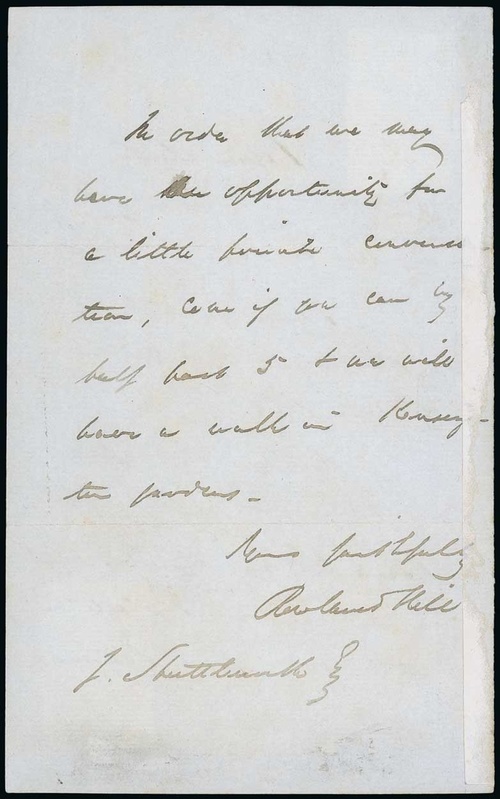 In order that we may
have an opportunity for
a little private conversa
tion, come if you can by
half past 5 & we will
have a walk in Kensing-
ton gardens_
Yours faithfully
Rowland Hill
J. Shuttleworth Esq